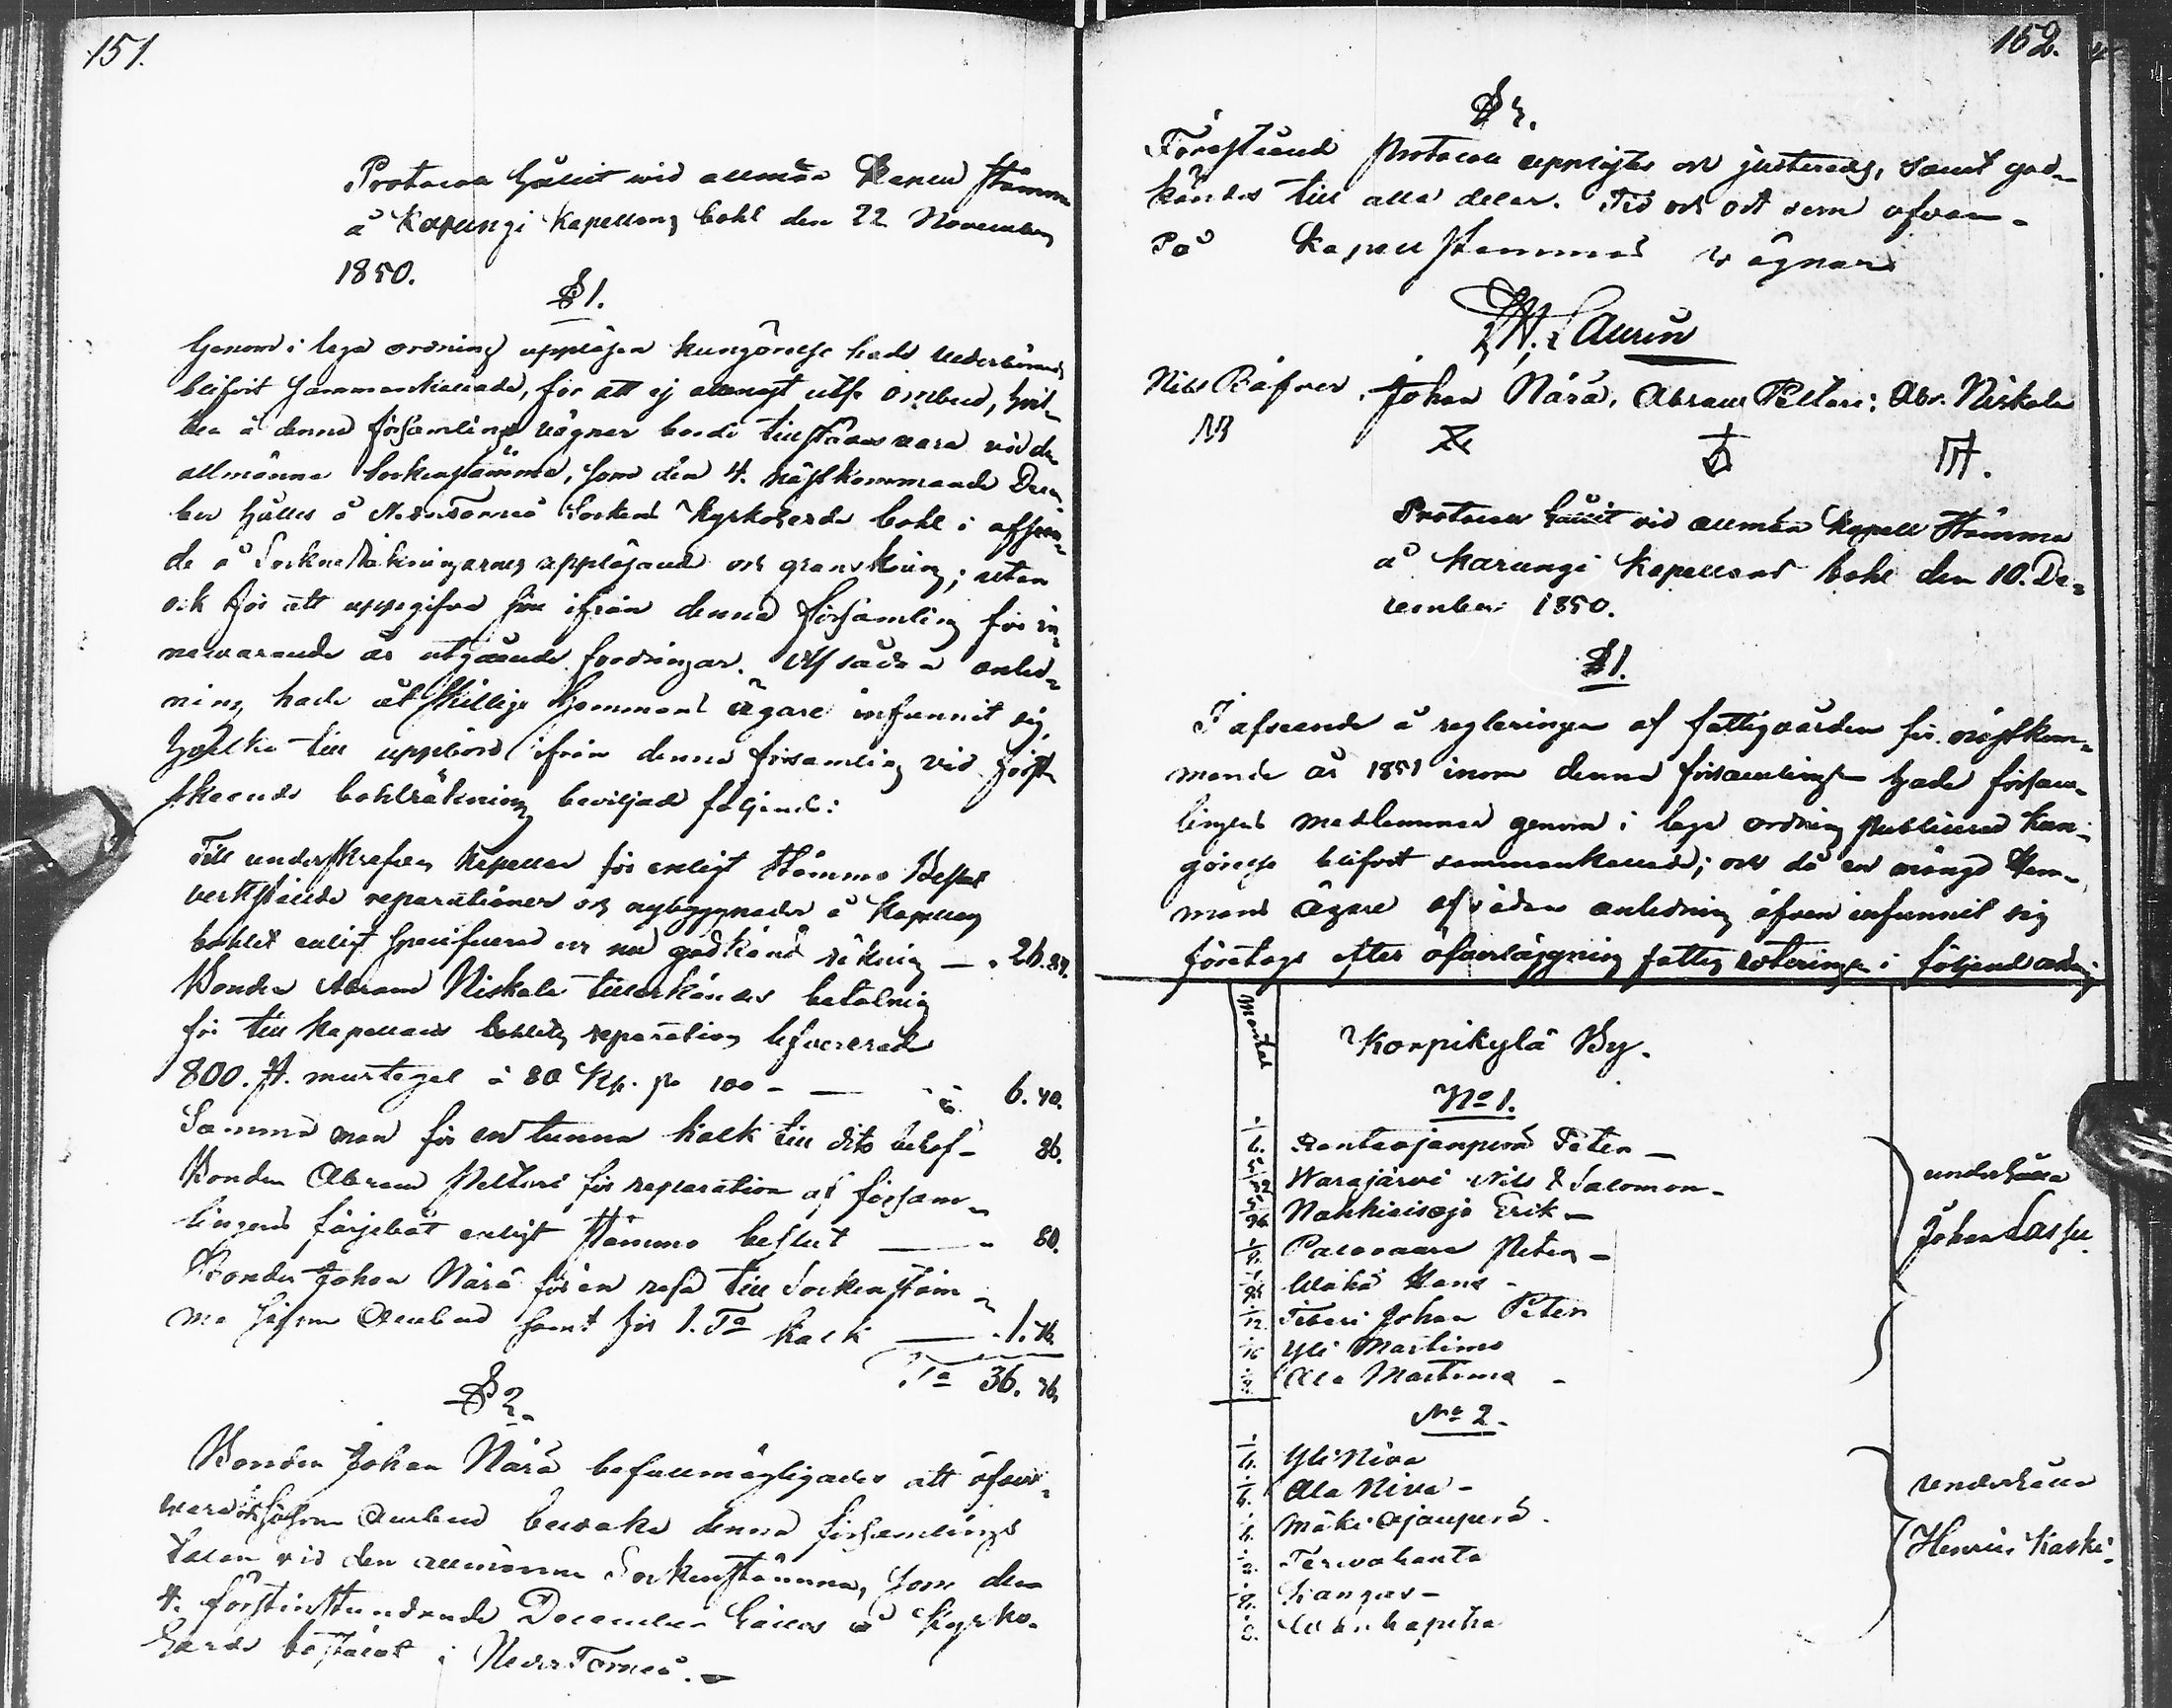 151.
Protocoll hållit wid allmän Kapell Stämma
å Karungi Kapellans bohl den 22 November
1850.
§ 1.
Genom i laga ordning uppläsen kungörelse hade vederbörande
blifvit sammankallade, för att ej allenast utse ombud, hvil-
ka å denna församlings vägnar borde tillstädes vara vid den
allmänna Sockenstämma, som den 4. nästkommande Decem-
ber hålles å NederTorneå Sockens Kyrkoherde bohl i afseen-
de å Sockneräkningarnes uppläsande och granskning; utan
ock för att uppgifva sine ifrån denna församling för in-
nevarande år utgående fordringar. Af sådan anled-
ning hade åtskillige Hemmans ägare infunnit sig,
hvilka till uppbörd ifrån denna församling vid först
skeende bohlräkning beviljade följande:
Till underskrefven Kapellan för enligt Stämmo Beslut
verkstälde reparationer och nybyggnader å Kapellans
bohlet enligt specificerad och nu godkänd räkning — 26.84.
Bonden Abram Niskala tillerkändes betalning
för till Kapellans bohlets reparation lefvererade
800. st. murtegel à 80 Kp. pr 100 - — 6. 40.
Samma man för en tunna kalk till dito behof - 86.
Bonden Abram Pelttari för reparation af försam-
lingens färjebåt enligt Stämmo beslut — 80.
Bonden Johan Närä för en resa till Sockenstäm-
ma såsom Ombud samt för 1. Ta kalk —
Sa 36. 76.
§ 2.
Bonden Johan Närä befullmägtigades att öfver-
vara såsom Ombud bevaka denna församlings
talan vid den allmänna Sockenstämma, som den
4. förstinstundande December hålles å Kyrko-
herde bostället i NederTorneå. —
152.
§ 3.
Förestående Protocoll upplästes och justerades, samt god-
kändes till alla delar. Tid och ort som ofvan -
På Kapell Stemmans vägnar
Laurin
Nils Räfver. Johan Närä. Abram Pelttari: Abr. Niskala
Protocoll hållit vid allmän Kapell Stämma
å Karungi Kapellans bohl den 10. De-
cember 1850.
§ 1.
I afseende å regleringen af fattigvården för nästkom-
mande år 1851 inom denna församling hade försam-
lingens medlemmar genom i laga ordning publicerad kun-
görelse blifvit sammankallade; och då en mängd Hem-
mans Ägare af sådan anledning äfven infunnit sig
företogs efter öfverläggning fattig roteringen i följande ordning
Mantal
Korpikylä By.
No 1.
Rantaojanperä Peter —
Warajärvi Nils & Salomon -
Nahkiaisoja Erik —
Palovaara Peter —
Hans -
Johan Peter
Yli Martimo
Ala Martimo -
underhålla
Johan Lassu
No 2.
Yli Niva
Ala Niva -
Mäki Ojanperä -
Tervahauta
Kangas —
underhålla
Henric Kaski